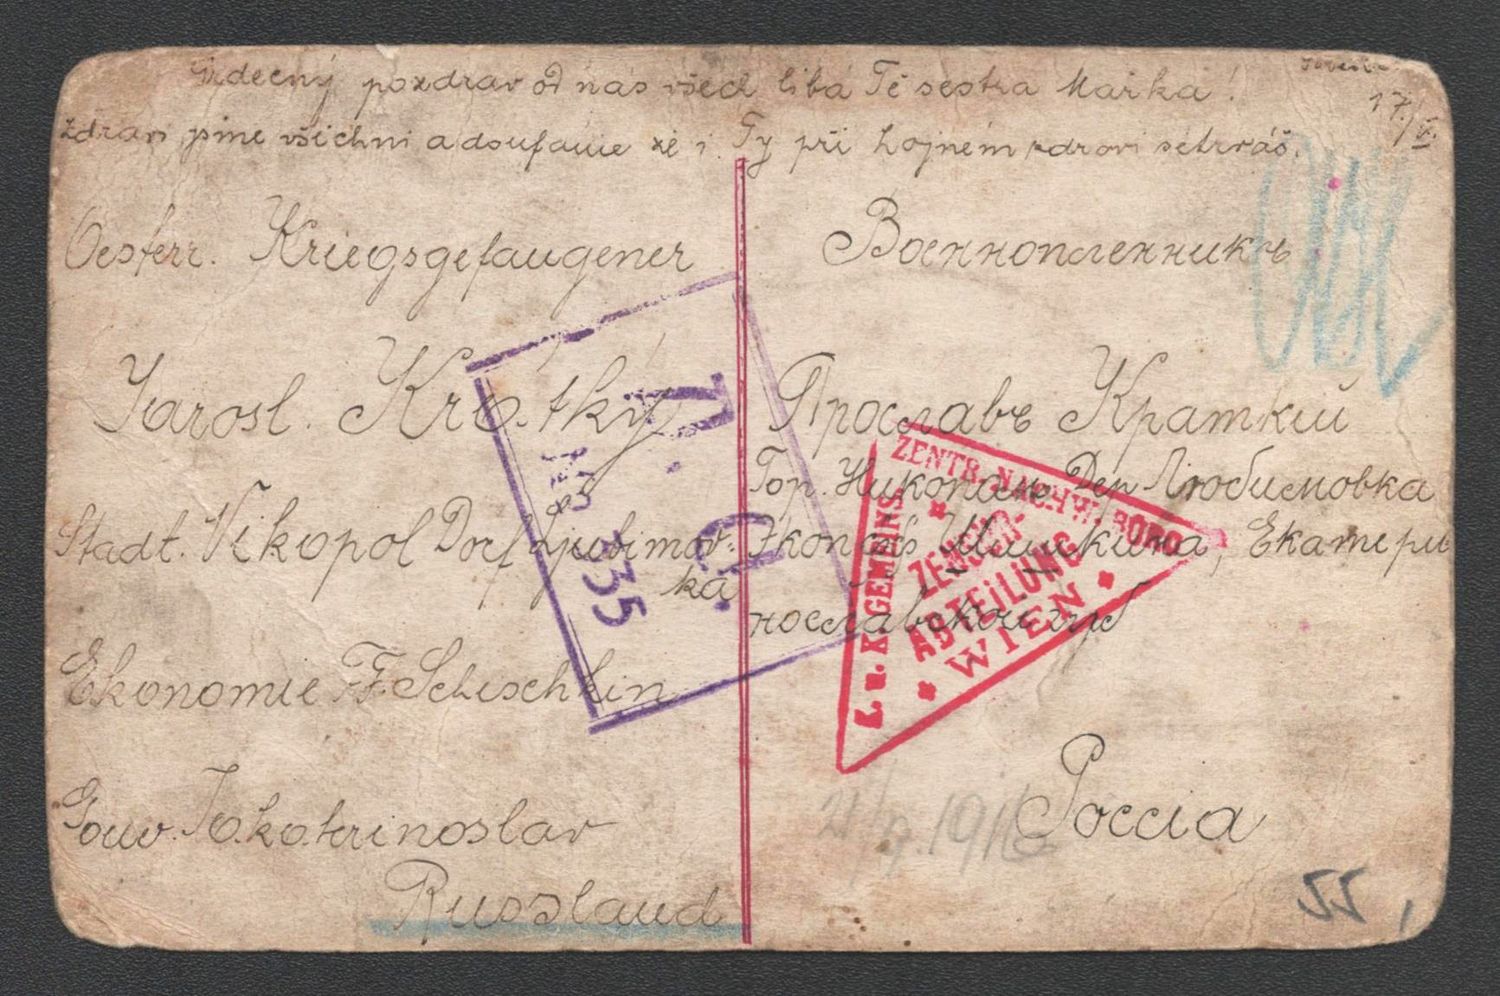 Srdečný pozdrav od nás všech líbá Tě sestra Mařka!
17./V.
Zdravi jsme všichni a doufame že i Ty při hojném zdrovi setrváš.
Oesterr. Kriegsgefangener
Jarosl. Krátký
Stadt. Nikopol Dorf Ljubimov-
ka
Ekonomie F. Schischkin
Gouv. Jekaterinoslav
Russland
Военнопленникъ
Ярославъ Краткій
Гор. Никополь Дер. Любимовка
Экономія Шишкина, Екатери
нославской губ
Россія
1916
55
П. Ц.
№ 335
K. u. K. GEMEINS.
ZENTR. NACHW. BÜRO
ZENSUR-
ABTEILUNG
WIEN